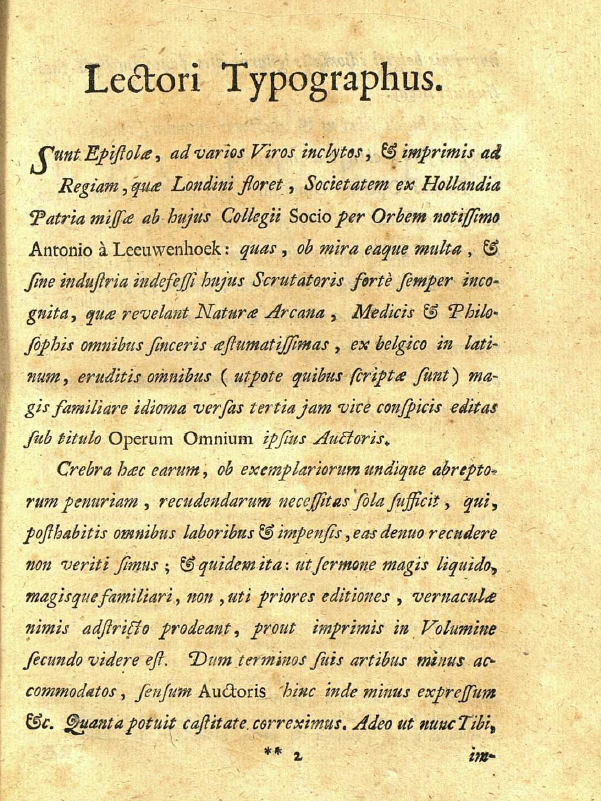 Lectori Typographus.
Sunt Epiſtolæ, ad varios Viros inclytos, & imprimis ad
Regiam, quæ Londini floret, Societatem ex Hollandia
Patria miſſæ ab hujus Collegii Socio per Orbem notiſſimo
Antonio à Leeuwenhoek: quas, ob mira eaque multa, &
ſine induſtria indefeſſi hujus Scrutatoris fortè ſemper inco-
gnita, quæ revelant Naturæ Arcana, Medicis & Philo-
ſophis omnibus ſinceris æſtumatiſſimas, ex belgico in lati-
num, eruditis omnibus ( utpote quibus ſcriptæ ſunt) ma-
gis familiare idioma verſas tertia jam vice conſpicis editas
ſub titulo Operum Omnium ipſius Auctoris.
Crebra hæc earum, ob exemplariorum undique abrepto-
rum penuriam, recudendarum neceſſitas ſola ſufficit, qui,
poſthabitis omnibus laboribus & impenſis, eas denuo recudere
non veriti ſimus; & quidem ita: ut ſermone magis liquido,
magisque familiari, non, uti priores editiones, vernaculæ
nimis adſtricto prodeant, prout imprimis in Volumine
ſecundo videre eſt. Dum terminos ſuis artibus minus ac-
commodatos, ſenſum Auctoris hinc inde minus expreſſum
&c. Quanta potuit caſtitate correximus. Adeo ut nunc Tibi,
** 2 im-